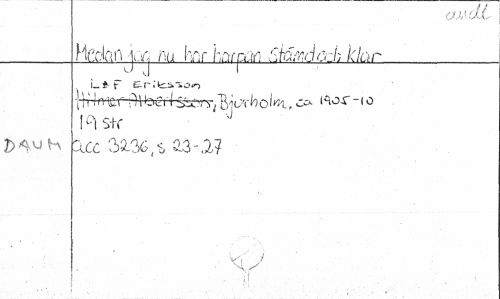 andt
Medan jag nu har harpan stämd och klar
Leif Eriksson
Hilmer Albertsson, Bjurholm, ca 1905-10
19 str
DAUM acc 3236, s 23-27